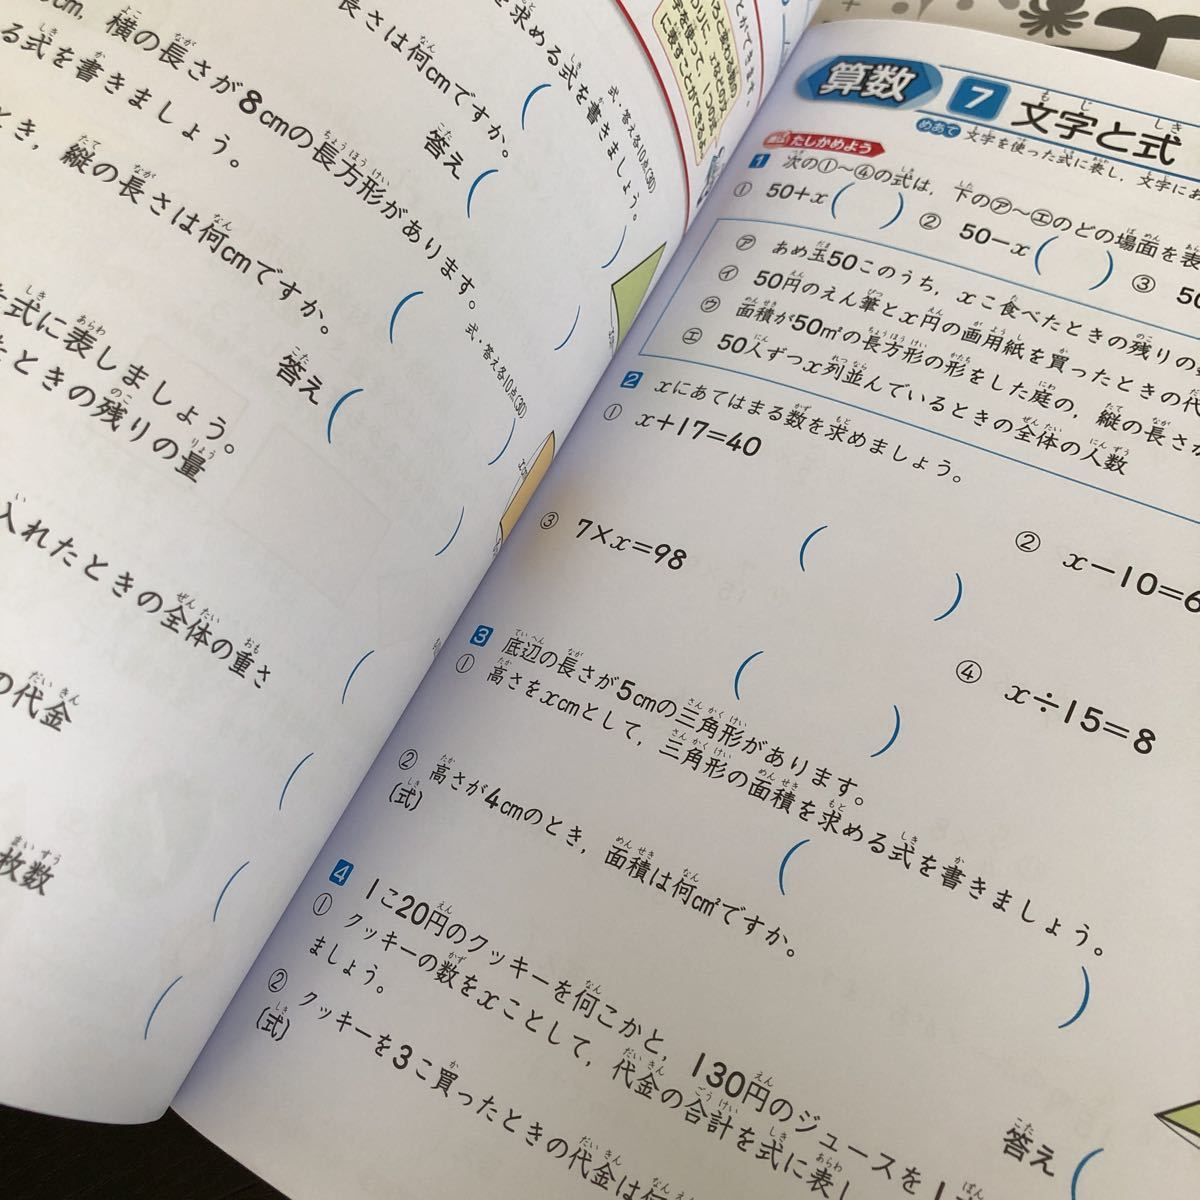 cm, 横の長さが8cmの長方形があります。
る式を書きましょう。
とき, 縦の長さは何cmですか。
を求める式を書きましょう。
長さは何cmですか。
答え
式・答え各10点(30)
答え
式・答え各10点(30)
式に表しましょう。
たときの残りの量
入れたときの全体の重さ
の代金
枚数
算数 7 文字と式
めあて 文字を使った式に表し, 文字にあ
たしかめよう
1 次の①〜④の式は, 下の㋐〜㋓のどの場面を表
① 50+x ( ) ② 50−x ( ) ③ 50
㋐ あめ玉50このうち, xこ食べたときの残りの
㋑ 50円のえん筆とx円の画用紙を買ったときの代
㋒ 面積が50m²の長方形の形をした庭の, 縦の長さが
㋓ 50人ずつx列並んでいるときの全体の人数
2 xにあてはまる数を求めましょう。
① x+17=40
② x−10=6
③ 7×x=98
④ x÷15=8
3 底辺の長さが5cmの三角形があります。
① 高さをxcmとして, 三角形の面積を求める式を書きましょう。
② 高さが4cmのとき, 面積は何cm²ですか。
(式)
答え
4 1こ20円のクッキーを何こかと, 130円のジュースを1
① クッキーの数をxことして, 代金の合計を式に表し
ましょう。
② クッキーを3こ買ったときの代金は何
(式)